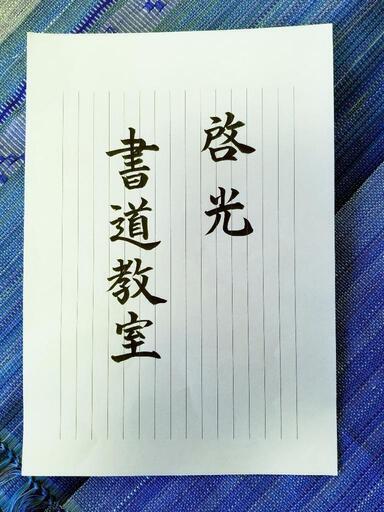 啓光
書道教室